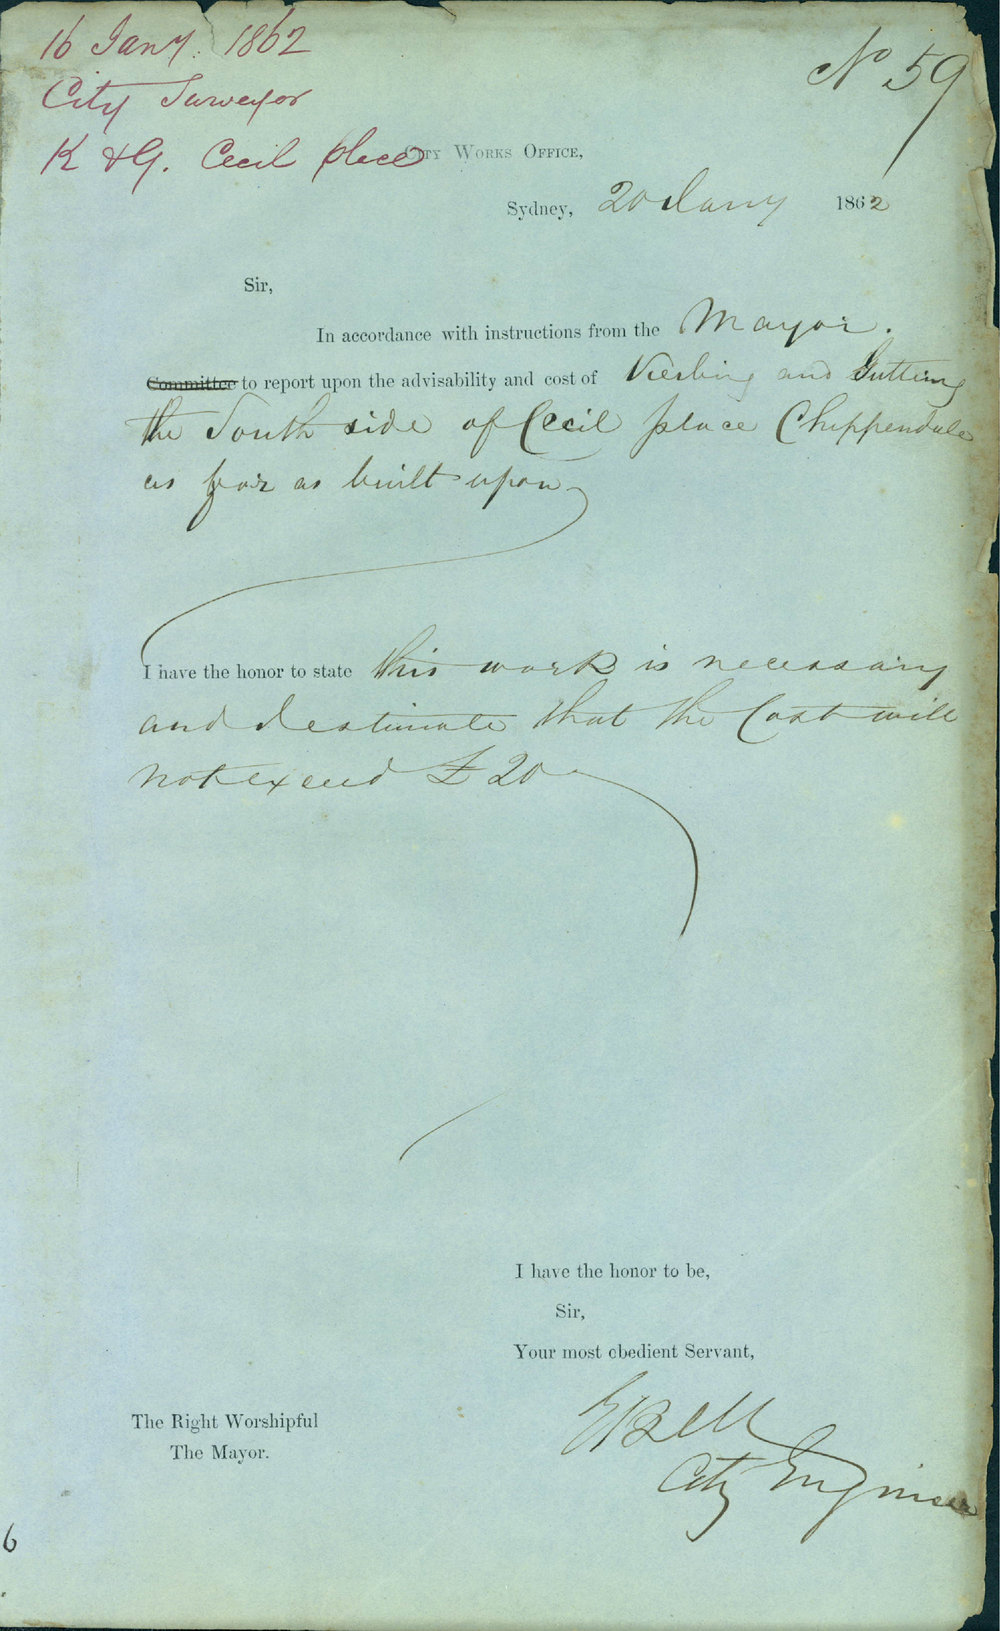 16 Jany. 1862
City Surveyor
K & G. Cecil place
No 59
City Works Office,
Sydney, 20 Jany 1862
Sir,
In accordance with instructions from the Mayor.
Committee to report upon the advisability and cost of Kerbing and Gutting
the South side of Cecil place Chippendale
as far as built upon
I have the honor to state this work is necessary
and I estimate that the Cost will
not exceed £20
I have the honor to be,
Sir,
Your most obedient Servant,
E Bell
City Engineer
The Right Worshipful
The Mayor.
6